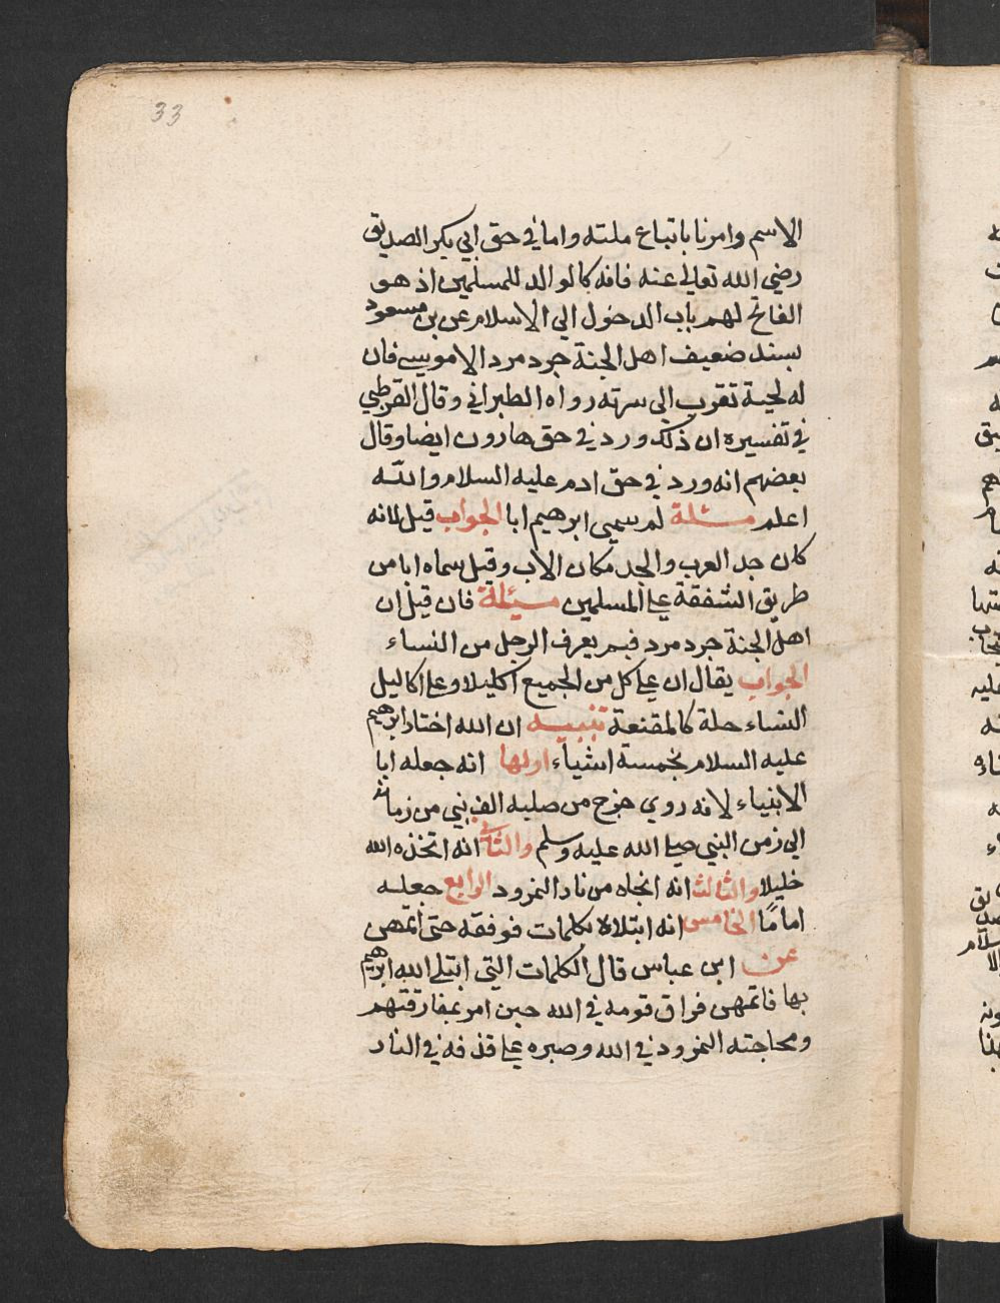 33
الاسم وامرنا باتباع ملته واما في حق ابي بكر الصديق
رضي الله تعالى عنه فانه كالوالد للمسلمين اذ هو
الفاتح لهم باب الدخول الي الاسلام عن بن مسعود
بسند ضعيف اهل الجنة جرد مرد الا موسى فان
له لحية تقرب الى سرته رواه الطبراني وقال القرطبي
في تفسيره ان ذلك ورد في حق هارون ايضا وقال
بعضهم انه ورد في حق ادم عليه السلام والله
اعلم مسئلة لم سمي ابرهيم ابا الجواب قيل لانه
كان جد العرب والجد مكان الاب وقيل سماه ابا من
طريق الشفقة على المسلمين مسئلة فان قيل ان
اهل الجنة جرد مرد فبم يعرف الرجل من النساء
الجواب يقال ان على كل من الجميع اكليلا وعلى اكاليل
النساء حلة كالمقنعة تنبيه ان الله اختار ابرهيم
عليه السلام بخمسة اشياء اولها انه جعله ابا
الانبياء لانه روي خرج من صلبه الف نبي من زمانه
الى زمن النبي صلى الله عليه وسلم والثاني انه اتخذه الله
خليلا والثالث انه انجاه من نار النمرود الرابع جعله
اماما الخامس انه ابتلاه بكلمات فوفقه حتى اتمهن
عن ابن عباس قال الكلمات التي ابتلى الله ابرهيم
بها فاتمهن فراق قومه في الله حين امر بمفارقتهم
ومحاجته النمرود في الله وصبره على قذفه في النار